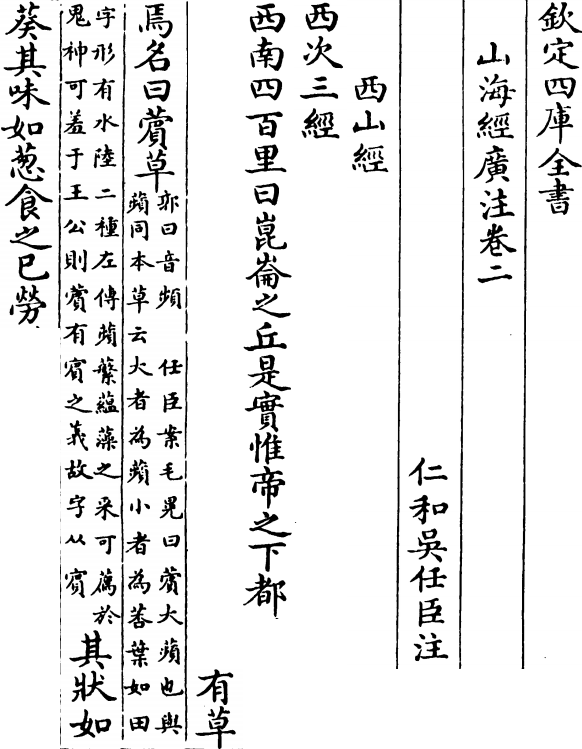 欽定四庫全書
山海經廣注卷二
仁和吳任臣注
西山經
西次三經
西南四百里曰崑崙之丘是實惟帝之下都
有草
焉名曰薲草
郭曰音頻 任臣案毛晃曰薲大蘋也與
蘋同本草云大者為蘋小者為荅葉如田
字形有水陸二種左傳蘋蘩蘊藻之采可薦於
鬼神可羞于王公則薲有賓之義故字从賓
其狀如
葵其味如葱食之已勞